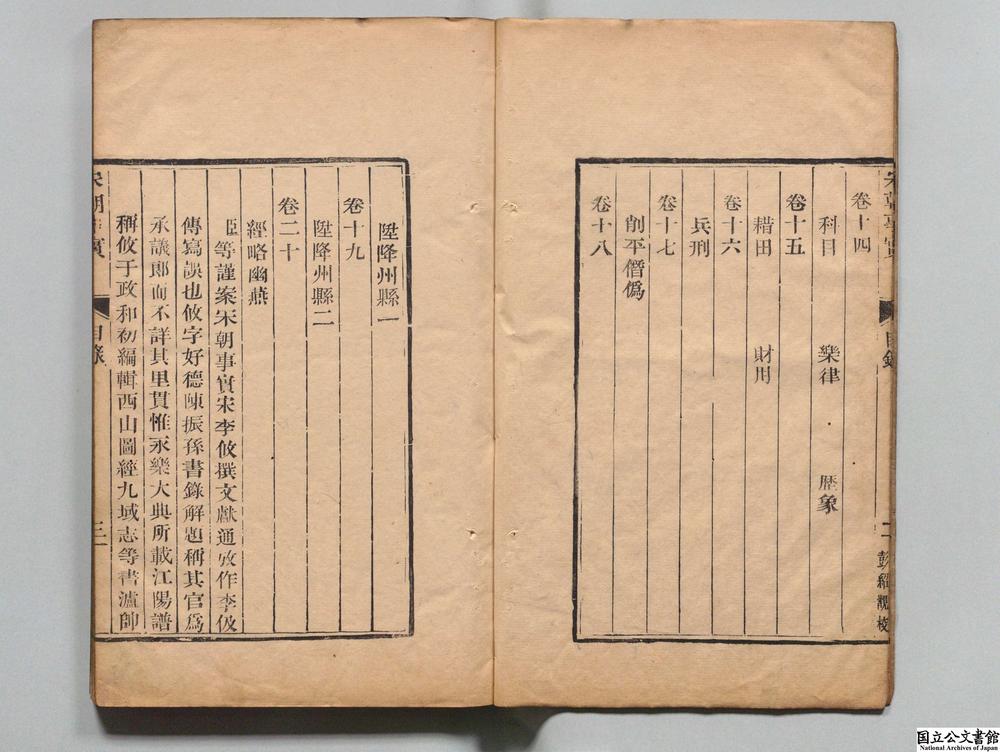 卷十四
科目 樂律 歴象
卷十五
耤田 財用
卷十六
兵刑
卷十七
削平僭僞
卷十八
彭紹觀校
陞降州縣一
卷十九
陞降州縣二
卷二十
經略幽燕
臣等謹案宋朝事實宋李攸撰文獻通攷作李伋
傳寫誤也攸字好德陳振孫書錄解題稱其官爲
承議郎而不詳其里貫惟永樂大典所載江陽譜
稱攸于政和初編輯西山圖經九域志等書瀘帥
宋朝事實 目錄 三
国立公文書館
National Archives of Japan